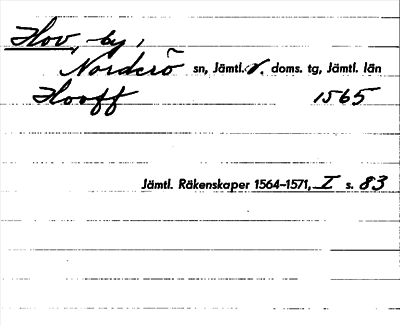 Hov, by,
Norderö sn, Jämtl. v. doms. tg, Jämtl. län
Hooff 1565
Jämtl. Räkenskaper 1564–1571, I s. 83